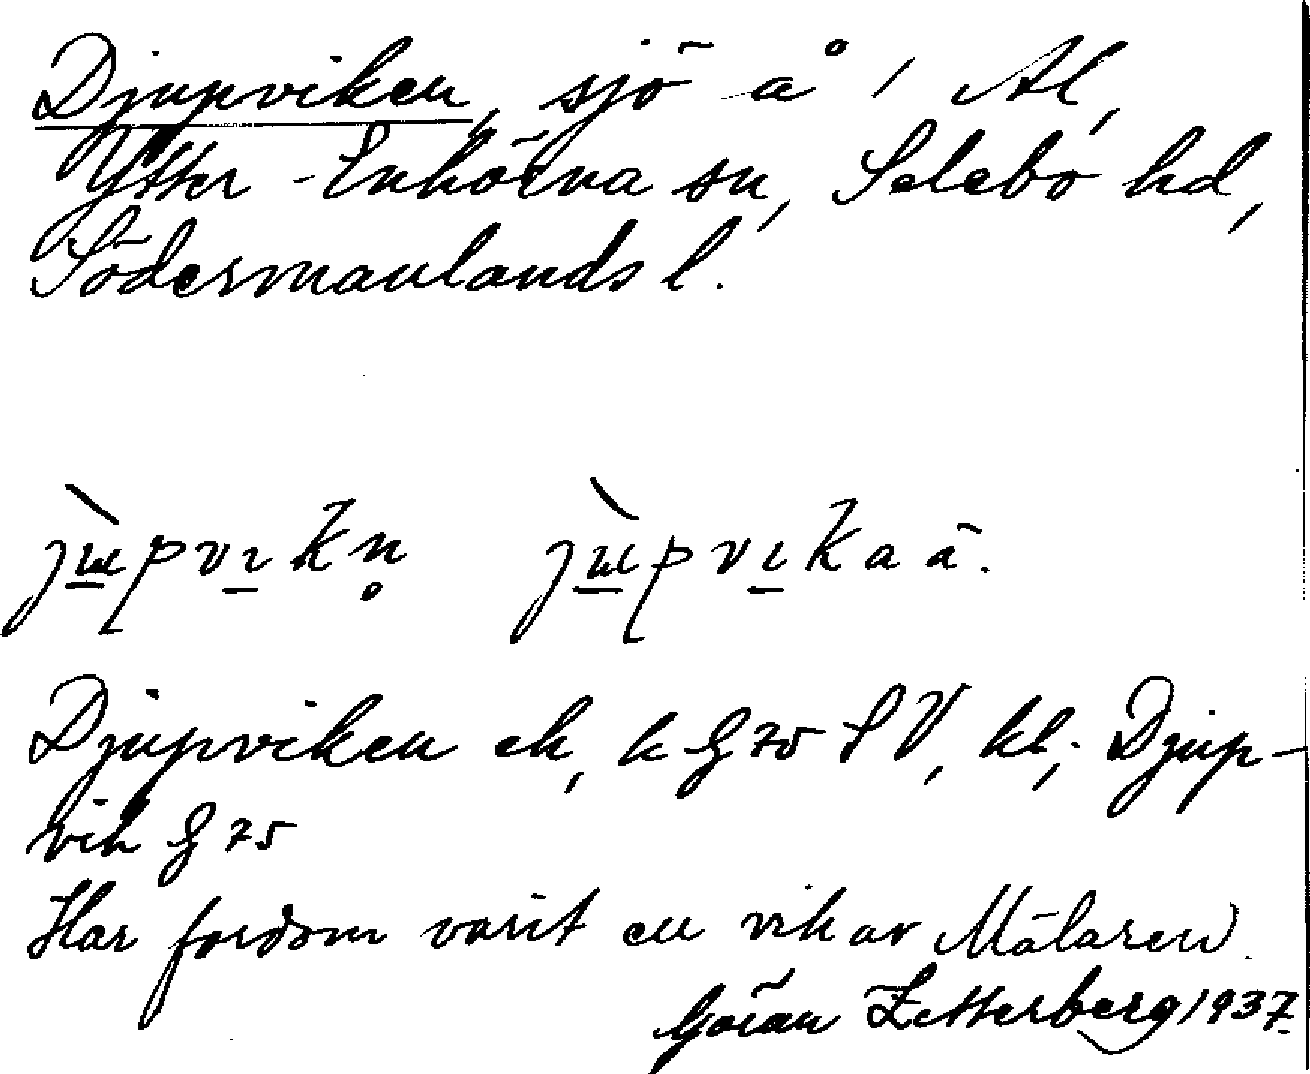 Djupviken, sjö å / Al,
Ytter-Enhörna sn, Selebo hd,
Södermanlands l.
Djupviken ek, k G 75 SV, hl; Djup-
vik G 75
Har fordom varit en vik av Mälaren.
Göran Zetterberg 1937